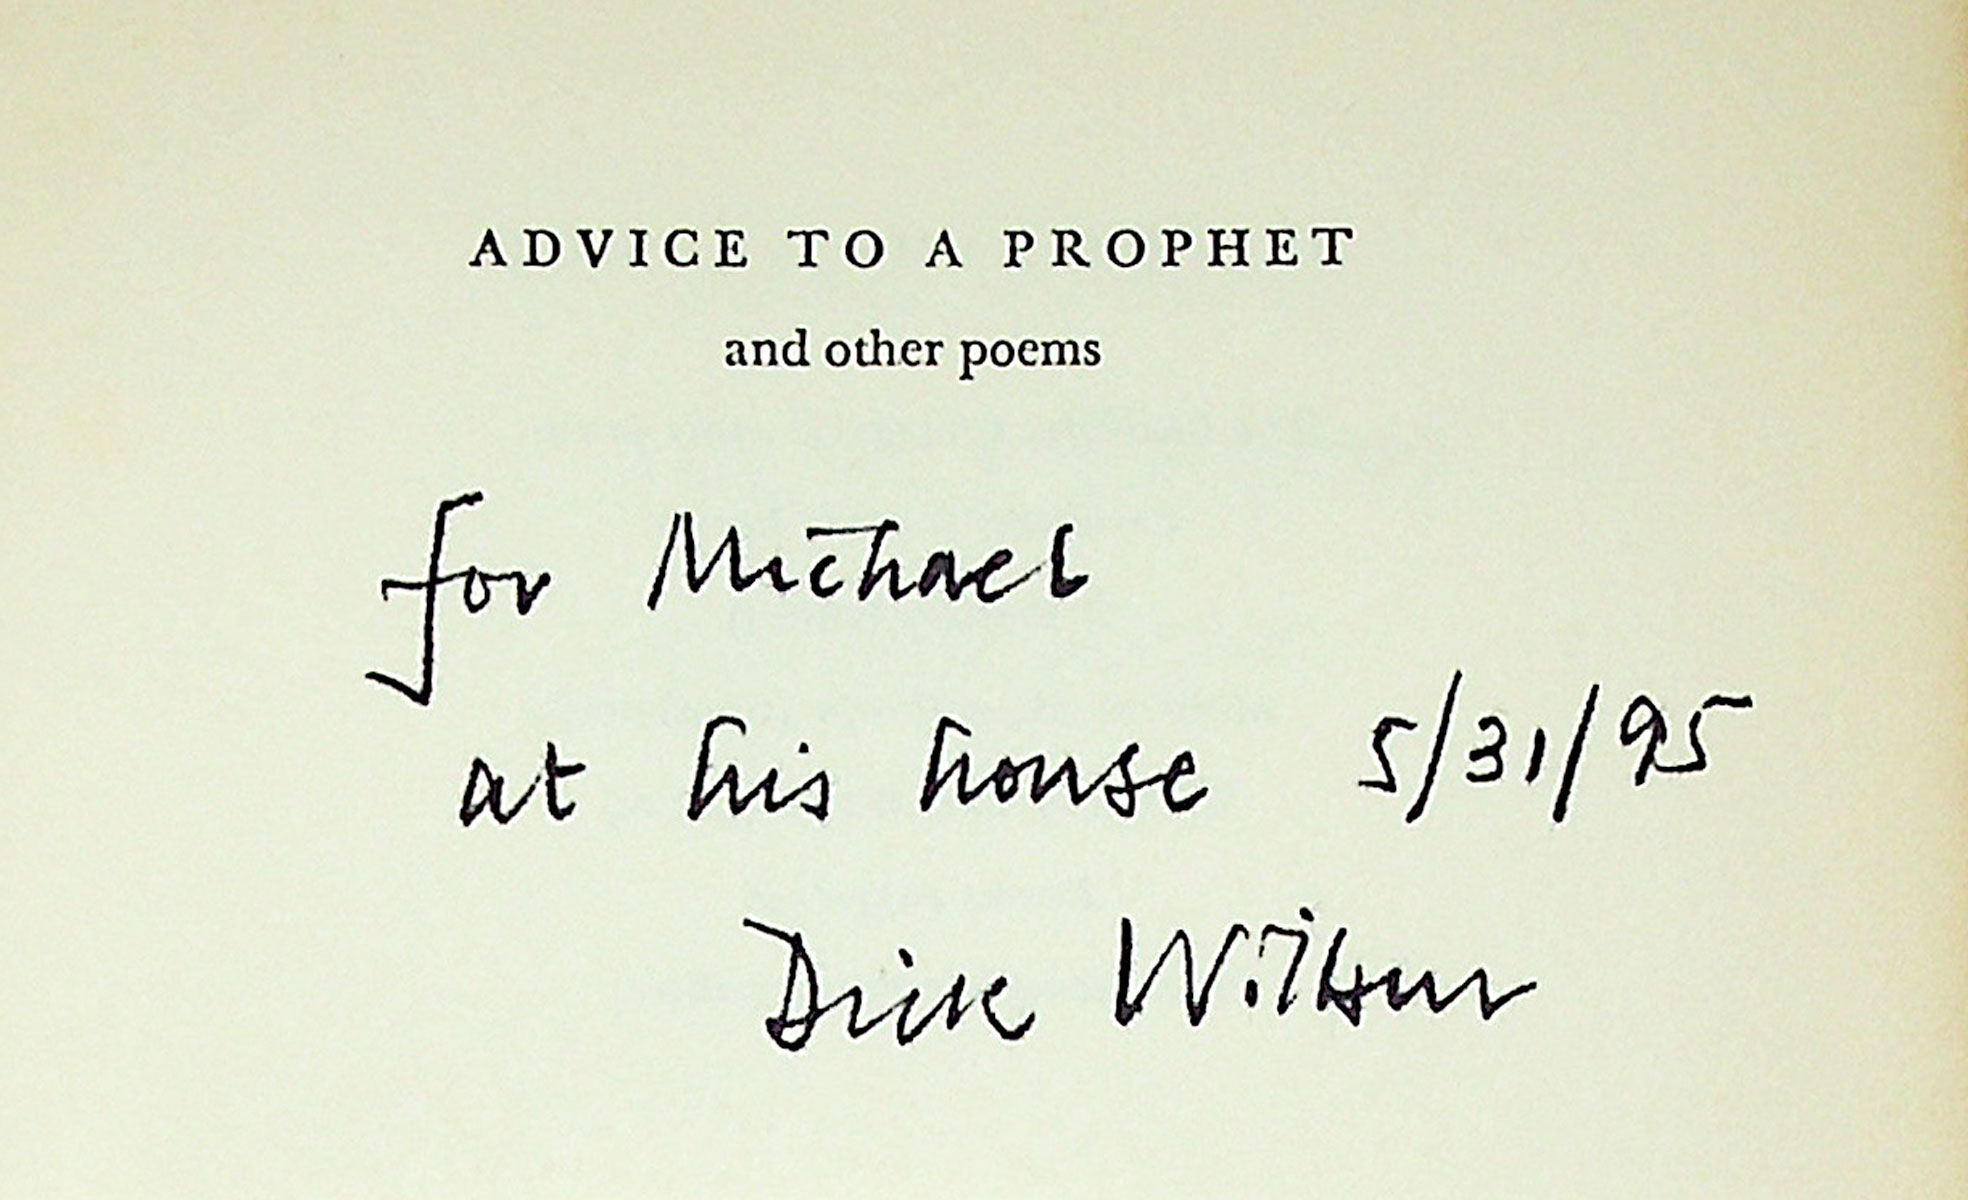 ADVICE TO A PROPHET
and other poems
for Michael
at his house 5/31/95
Dick Wilbur